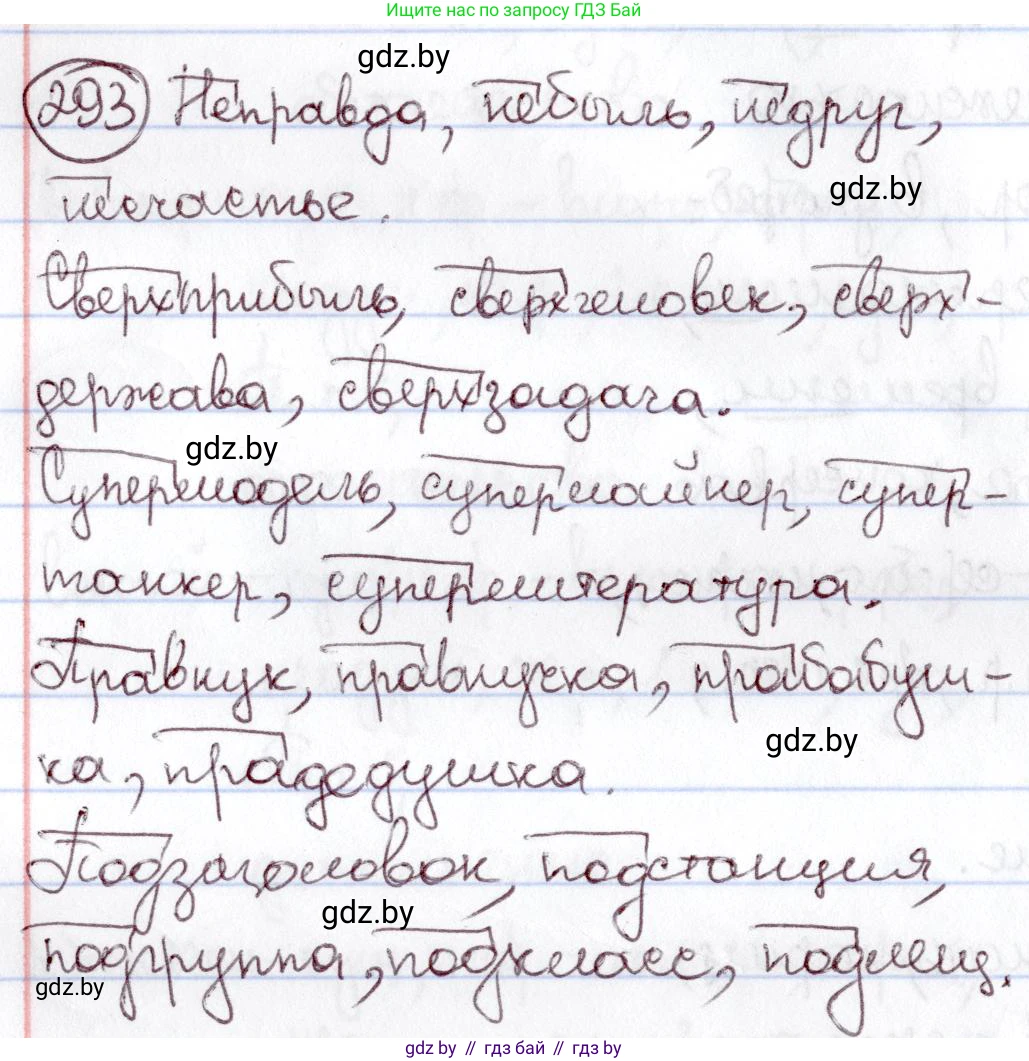 Ищите нас по запросу ГДЗ Бай
gdz.by
293 Неправда, небыль, недруг,
gdz.by
несчастье.
Сверхприбыль, сверхчеловек, сверх-
держава, сверхзадача.
gdz.by
Супермодель, суперлайнер, супер-
танкер, суперлитература.
Правнук, правнучка, прабабуш-
gdz.by
ка, прадедушка.
Подзаголовок, подстанция,
gdz.by
подгруппа, подкласс, подлещ.
gdz.by
gdz.by // гдз бай // гдз by